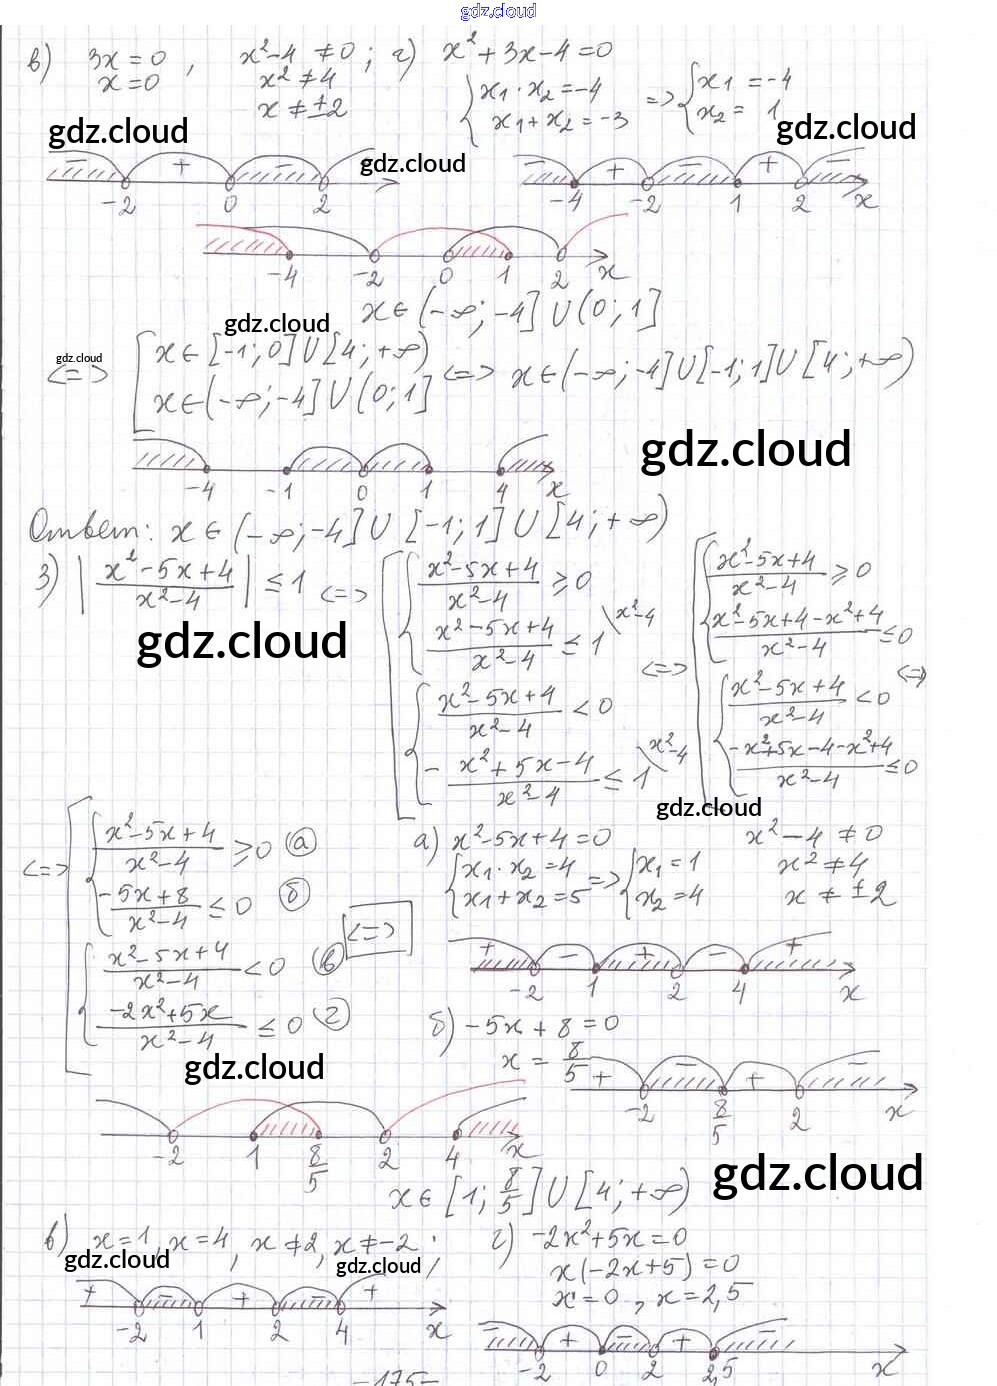 gdz.cloud
в) 3x = 0, x² - 4 ≠ 0; г) x² + 3x - 4 = 0
x = 0 x² ≠ 4 { x₁ · x₂ = -4 => { x₁ = -4
x ≠ ±2 x₁ + x₂ = -3 x₂ = 1
gdz.cloud gdz.cloud gdz.cloud
- + - - + - + -
-2 0 2 -4 -2 1 2 x
-4 -2 0 1 2 x
x ∈ (-∞; -4] ∪ (0; 1]
gdz.cloud
gdz.cloud
<=> [ x ∈ [-1; 0] ∪ [4; +∞)
x ∈ (-∞; -4] ∪ (0; 1] <=> x ∈ (-∞; -4] ∪ [-1; 1] ∪ [4; +∞)
gdz.cloud
-4 -1 0 1 4 x
Ответ: x ∈ (-∞; -4] ∪ [-1; 1] ∪ [4; +∞)
3) |(x² - 5x + 4)/(x² - 4)| ≤ 1 <=> [ { (x² - 5x + 4)/(x² - 4) ≥ 0
(x² - 5x + 4)/(x² - 4) ≤ 1 \ x² - 4
{ (x² - 5x + 4)/(x² - 4) < 0
(-x² + 5x - 4)/(x² - 4) ≤ 1 \ x² - 4
<=> [ { (x² - 5x + 4)/(x² - 4) ≥ 0
(x² - 5x + 4 - x² + 4)/(x² - 4) ≤ 0
{ (x² - 5x + 4)/(x² - 4) < 0
(-x² + 5x - 4 - x² + 4)/(x² - 4) ≤ 0 <=>
gdz.cloud
gdz.cloud
<=> [ { (x² - 5x + 4)/(x² - 4) ≥ 0 а
(-5x + 8)/(x² - 4) ≤ 0 б
{ (x² - 5x + 4)/(x² - 4) < 0 в
(-2x² + 5x)/(x² - 4) ≤ 0 г
<=>
а) x² - 5x + 4 = 0 x² - 4 ≠ 0
{ x₁ · x₂ = 4 => { x₁ = 1 x² ≠ 4
x₁ + x₂ = 5 x₂ = 4 x ≠ ±2
+ - + - +
-2 1 2 4 x
б) -5x + 8 = 0
x = 8/5
+ - + -
-2 8/5 2 x
gdz.cloud
-2 1 8/5 2 4 x
gdz.cloud
x ∈ [1; 8/5] ∪ [4; +∞)
в) x = 1, x = 4, x ≠ 2, x ≠ -2;
gdz.cloud gdz.cloud
+ - + - +
-2 1 2 4 x
г) -2x² + 5x = 0
x(-2x + 5) = 0
x = 0, x = 2,5
- + - + -
-2 0 2 2,5 x
-175-